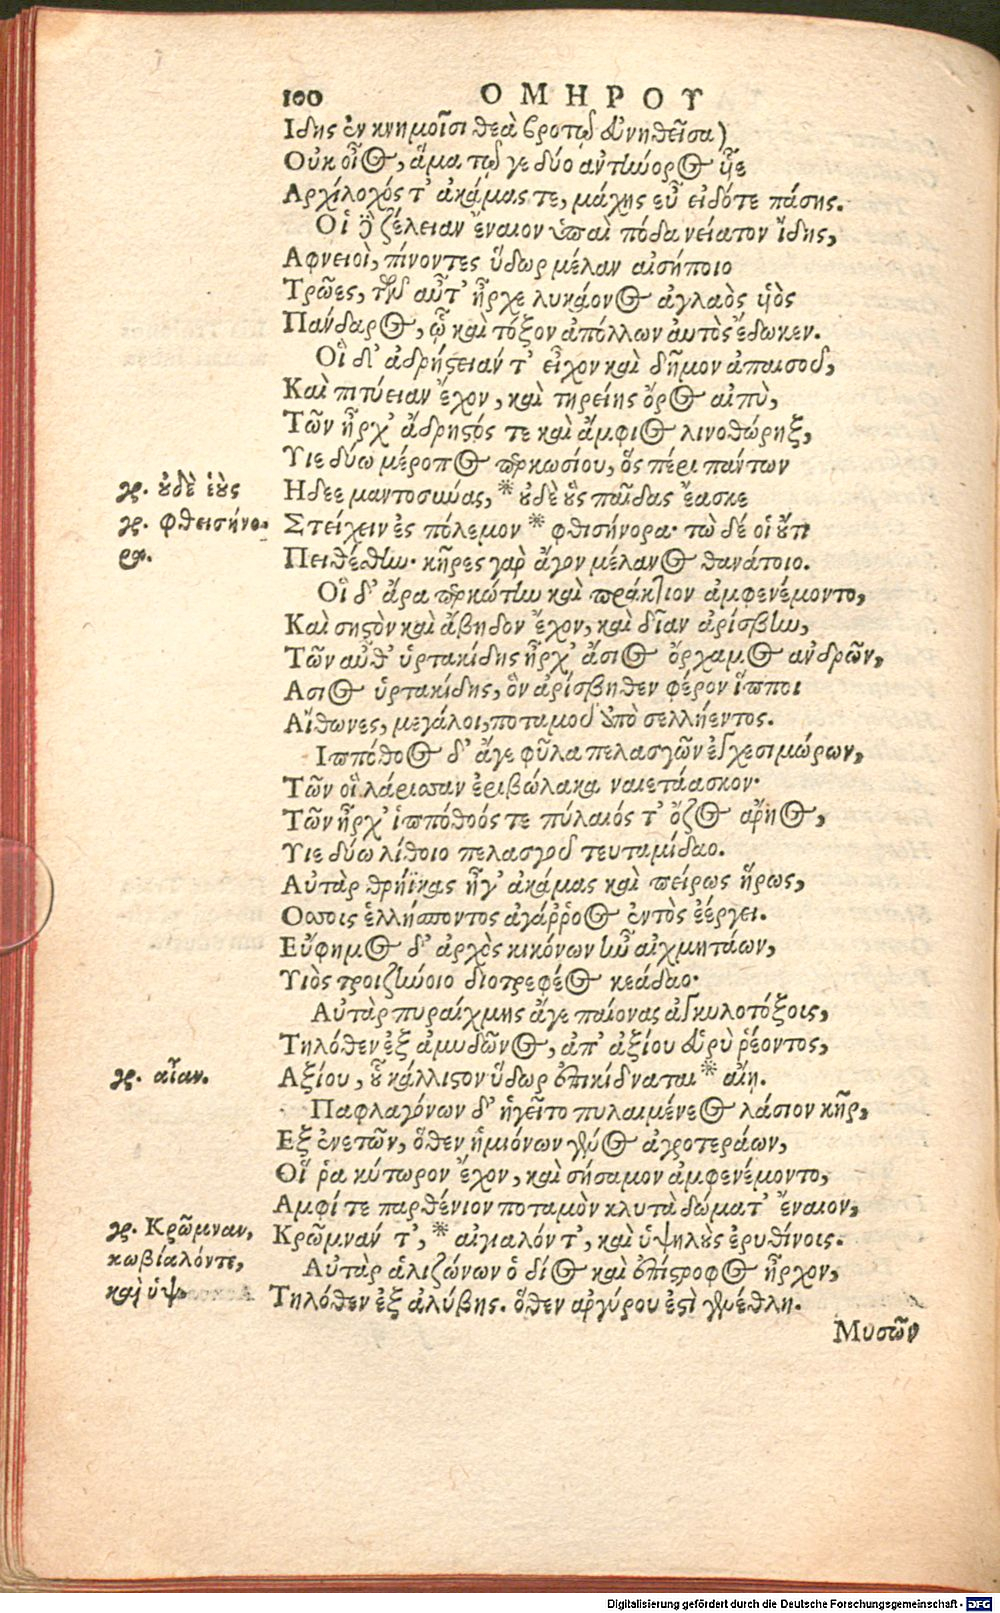 100 ΟΜΗΡΟΥ
Ιδης ἐν κνημοῖσι θεὰ βροτῷ εὐνηθεῖσα)
Οὐκ οἶος, ἅμα τῷ γε δύο ἀντήνορος ὗιε
Αρχίλοχός τ' ἀκάμας τε, μάχης εὖ εἰδότε πάσης.
Οἱ ἢ ζέλειαν ἔναιον ὑπαὶ πόδα νείατον ἴδης,
Αφνειοὶ, πίνοντες ὕδωρ μέλαν αἰσήποιο
Τρῶες, τῶν αὖτ' ἦρχε λυκάονος ἀγλαὸς ὑὸς
Πανδαρος, ᾧ καὶ τόξον ἀπόλλων ἀυτὸς ἔδωκεν.
Οἳ δ' ἀδρήστειαν τ' εἶχον καὶ δῆμον ἀπαισοῦ,
Καὶ πιτύειαν ἔχον, καὶ τηρείης ὄρος αἰπὺ,
Τῶν ἦρχ' ἄδρηστός τε καὶ ἄμφιος λινοθώρηξ,
Υιε δύω μέροπος περκωσίου, ὅς πέρι παντων
γρ. οὐδὲ ἑοὺς Ηδεε μαντοσύνας, * οὐδὲ οὓς παῖδας ἔασκε
γρ. φθεισήνο- Στείχειν ἐς πόλεμον * φθισήνορα· τὼ δέ οἱ οὔτι
ρα. Πειθέσθην· κῆρες γαρ ἄγον μέλανος θανάτοιο.
Οἳ δ' ἄρα περκώτην καὶ πράκτιον ἀμφενέμοντο,
Καὶ σηστὸν καὶ ἄβηδον ἔχον, καὶ δῖαν ἀρίσβην,
Τῶν αὖθ' ὑρτακίδης ἦρχ' ἄσιος ὄρχαμος ἀνδρῶν,
Ασιος ὑρτακίδης, ὃν ἀρίσβηθεν φέρον ἵπποι
Αἴθωνες, μεγάλοι, ποταμοῦ ὑπὸ σελλήεντος.
Ιππόθοος δ' ἄγε φῦλα πελασγῶν ἐγχεσιμώρων,
Τῶν οἳ λάρισσαν ἐριβώλακα ναιετάασκον·
Τῶν ἦρχ' ἱππόθοός τε πύλαιός τ' ὄζος ἄρηος,
Υιε δύω λίθοιο πελασγοῦ τευταμίδαο.
Αὐτὰρ θρήϊκας ἦγ' ἀκάμας καὶ πείρως ἥρως,
Οσσοις ἑλλήσποντος ἀγάῤῥοος ἐντὸς ἐέργει.
Εὔφημος δ' ἀρχὸς κικόνων ἦν αἰχμητάων,
Υιὸς τροιζήνοιο διοτρεφέος κεάδαο·
Αὐτὰρ πυραίχμης ἄγε παίονας ἀγκυλοτόξοις,
Τηλόθεν ἐξ ἀμυδῶνος, ἀπ' ἀξίου εὐρὺ ῥέοντος,
γρ. αἶαν. Αξίου, οὗ κάλλιστον ὕδωρ ἐπικίδναται * αἴη.
Παφλαγόνων δ' ἡγεῖτο πυλαιμένεος λάσιον κῆρ,
Εξ ἐνετῶν, ὅθεν ἡμιόνων γένος ἀγροτεράων,
Οἵ ῥα κύτωρον ἔχον, καὶ σήσαμον ἀμφενέμοντο,
Αμφί τε παρθένιον ποταμὸν κλυτὰ δώματ' ἔναιον,
γρ. Κρῶμναν, Κρῶμναν τ', * αἰγιαλόν τ', καὶ ὑψηλοὺς ἐρυθίνοις.
κωβίαλόντε, Αὐτὰρ ἁλιζώνων ὁ δίος καὶ ἐπίστροφος ἦρχον,
καὶ ὑψ. Τηλόθεν ἐξ ἀλύβης. ὅθεν ἀργύρου ἐστὶ γενέθλη.
Μυσῶν
Digitalisierung gefördert durch die Deutsche Forschungsgemeinschaft - DFG